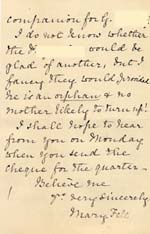 companion for G.
I do not know whether
the D would be
glad of another, but I
fancy they would promise
he is an orphan & no
mother likely to turn up!
I shall hope to hear
from you on Monday
when you send the
cheque for the quarter -
Believe me
Yrs very sincerely
Mary Fell